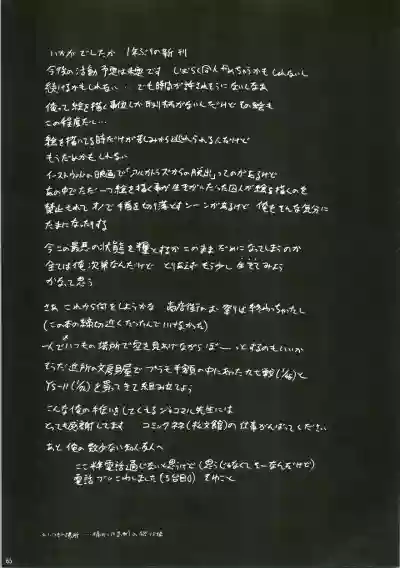 いかがでしたか 1年ぶりの新刊
今後の活動予想は未定です しばらく同人やめちゃうかもしれないし
続けるかもしれない… でも時間が許されそうにないしなあ
俺って絵を描く事位しか取り柄がないんだけど その絵も
この程度だし…
絵を描いてる時だけが苦しみから逃れられる人なんだけど
もうだめかもしれない
イーストウッドの映画で「アルカトラズからの脱出」ってのがあるけど
あの中でただ一つ絵を描く事が生きがいだった囚人が絵を描くのを
禁止されて オノで手指を切り落とすシーンがあるけど 俺もそんな気分に
たまになったりする
今この最悪の状態を糧とするか このままだめになってしまうのか
全ては俺次第なんだけど とりあえずもう少し生きてみよう
かなって思う
さあ これから何をしようかな 商店街の 祭りは終わっちゃったし
(この本の締切近くだったんで 行けなかった)
一人でいつもの場所で空を見あげながら ぼーっとするのもいいか
もうだ 近所の文房具屋で プラモ半額の中にあった 九七艦
YS-11 を買ってきて組み立てよう
こんな俺の手伝いをしてくれる ジョコマル先生には
とっても感謝してます コミック の仕事がんばってください
あと 俺の数少ない知人友人へ
ここ 電話通じないと思うけど (思うじゃなくて なんだけど)
電話 こわしました (3台目) ゆめこと
※いつもの場所
65